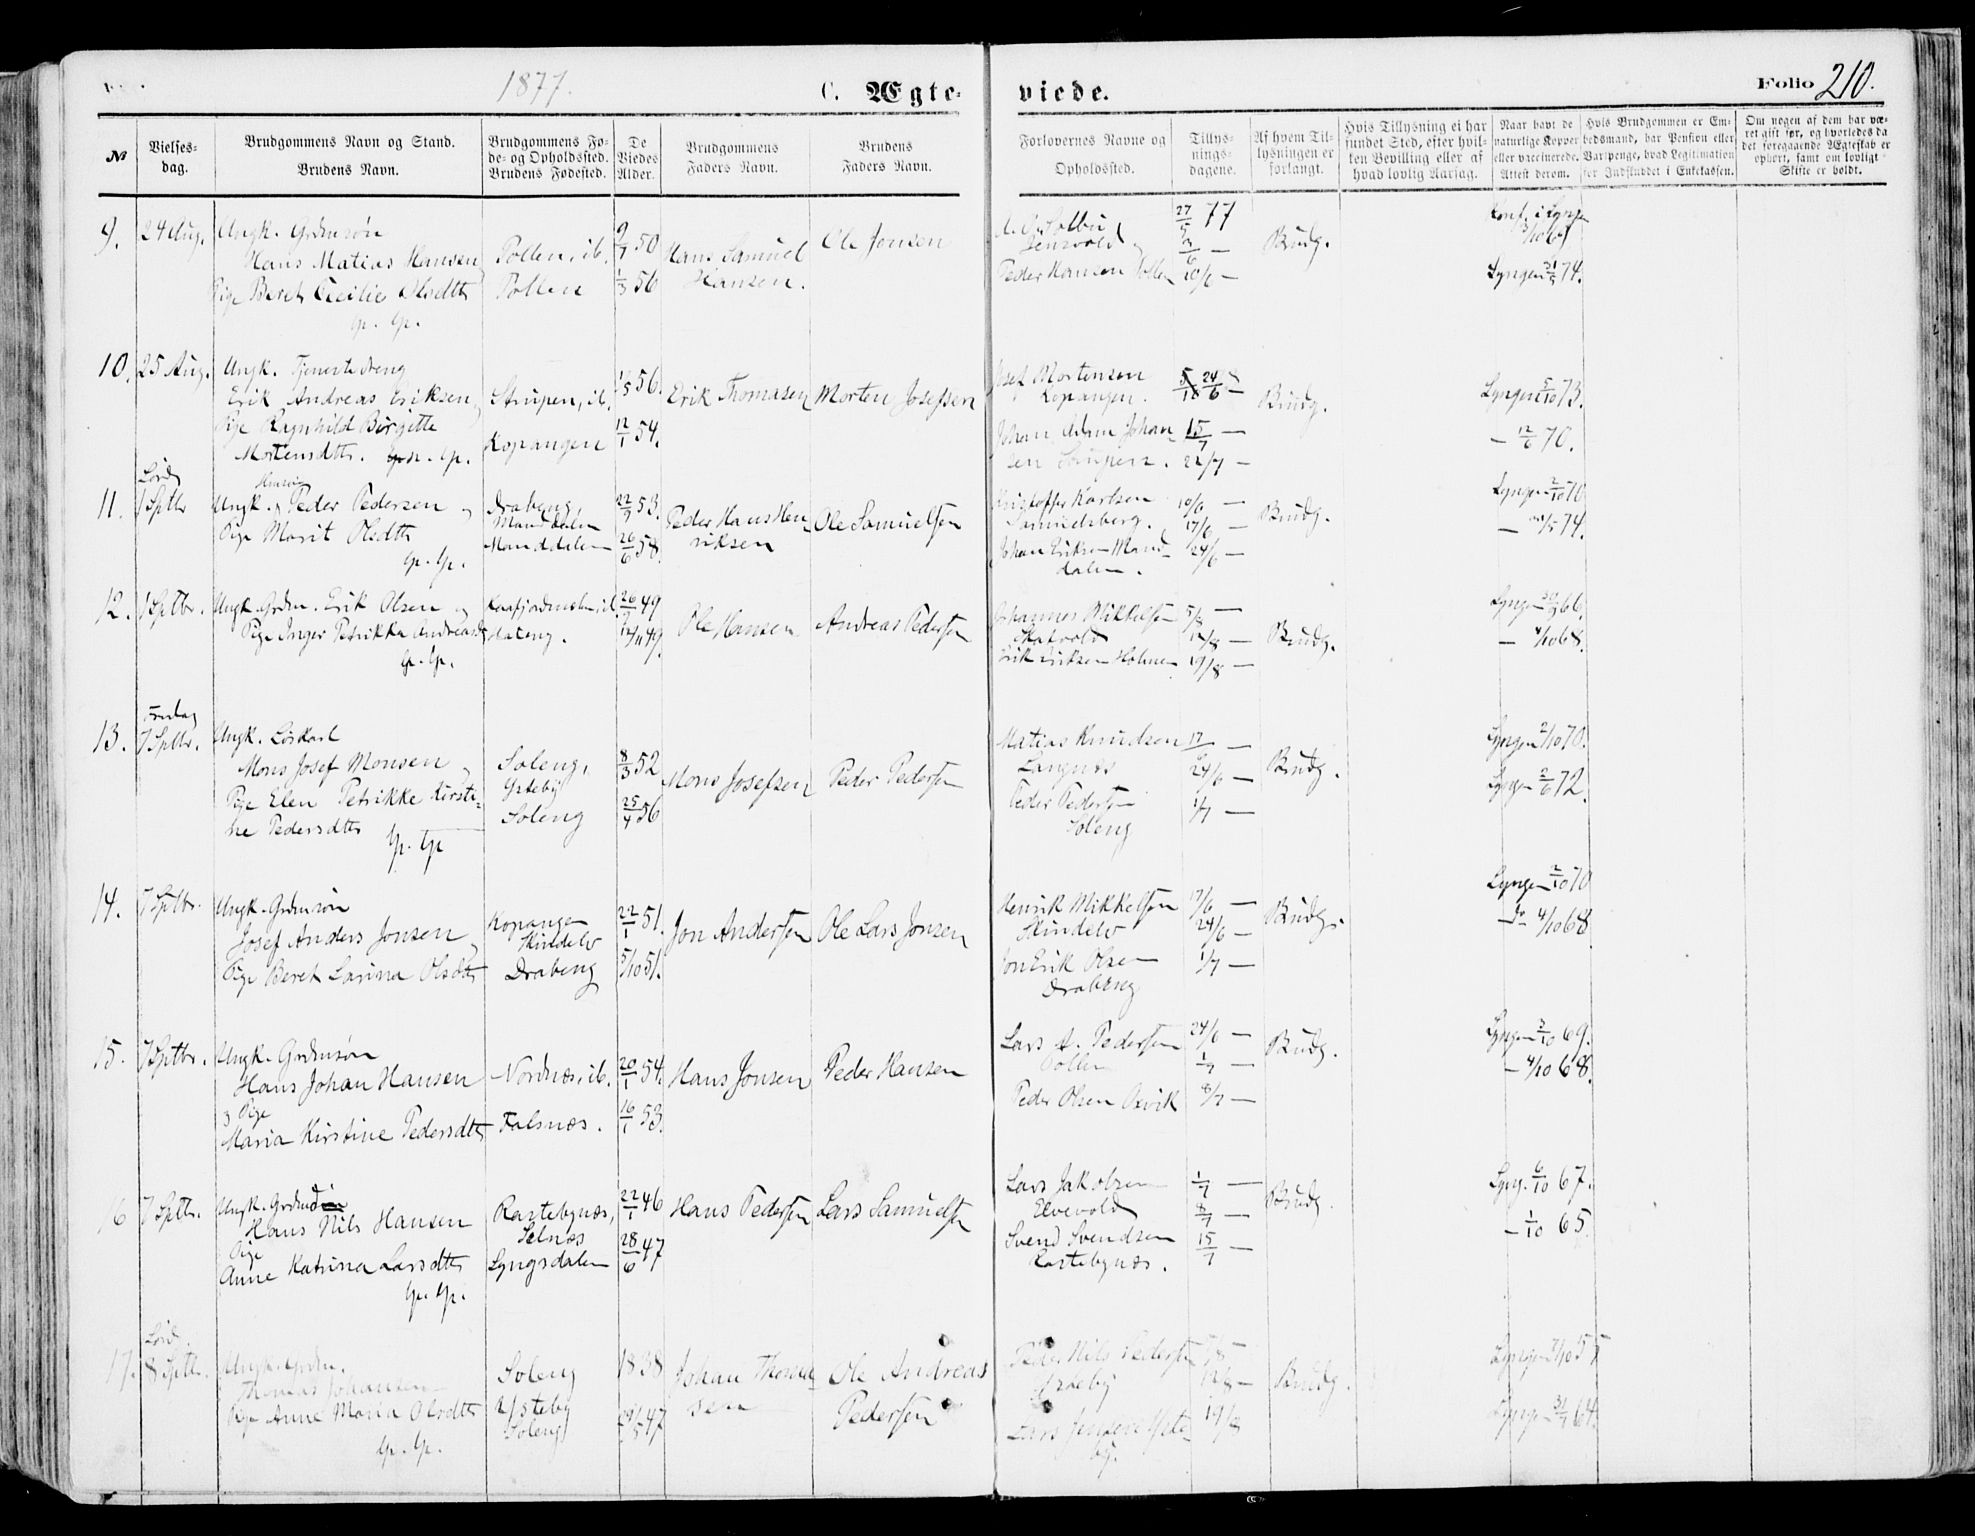 1877.
C. Ægte-
viede.
Folio 210.
№
Vielses-
dag.
Brudgommens Navn og Stand.
Brudens Navn.
Brudgommens Fø-
de- og Opholdssted.
Brudens Fødested.
De
Viedes
Alder.
Brudgommens
Faders Navn.
Brudens
Faders Navn.
Forlovernes Navne og
Opholdssted.
Tillys-
nings-
dagene.
Af hvem Til-
lysningen er
forlangt.
Hvis Tillysning ei har
fundet Sted, efter hvil-
ken Bevilling eller af
hvad lovlig Aarsag.
Naar havt de
naturlige Kopper
eller vaccinerede.
Attest derom.
Hvis Brudgommen er Em-
bedsmand, har Pension eller
Vartpenge, hvad Legitimation
for Indskuddet i Enkekassen.
Om nogen af dem har væ-
ret gift før, og hvorledes da
det foregaaende Ægteskab er
ophørt, samt om lovligt
Skifte er holdt.
9. 24 Aug.
Ungk. Grdmsøn
Hans Matias Hansen
Pige Beret Cecilie Olsdtt
Pollen, ib.
Pollen
9/7 50
1/3 56
Hans Samuel
Hansen.
Ole Jensen
Peder Hansen Pollen
27/5 77
3/6 —
10/6 —
Brudg.
Konf. i Lyngen
Lyngen 74.
10. 25 Aug.
Ungk. Tjenestedreng
Erik Andreas Eriksen
Pige Ragnhild Birgitte
Mortensdtt.
Strupen, ib.
Kopangen
1/5 56.
12/1 54.
Erik Thomasen
Morten Josefsen
Josef Mortensen
Kopangen.
Johan Adam Johan-
sen Strupen.
24/6 —
15/7 —
22/7 —
Brudg.
Lyngen 5/10 73.
— 12/6 70.
11. Lørd
1 Sptbr
Ungk. Peder Pedersen og
Pige Marit Olsdtt
Drabeng
Manddalen
Manddalen
22/9 53.
26/6 58.
Peder Hans Hen-
riksen
Ole Samuelsen
Kristoffer Karlsen
Samuelsberg.
Johan Eriksen Mand-
dalen.
10/6 —
17/6 —
24/6 —
Brudg.
Lyngen 2/10 70
— 74.
12. 1 Sptbr.
Ungk. Grdm. Erik Olsen og
Pige Inger Petrikka Andreasdt
Hateng.
26/9 49
12/11 49.
Ole Hansen
Andreas Pedersen
Johannes Mikkelsen
Skatvold
Erik Eriksen Holmen
5/8 —
12/8 —
19/8 —
Brudg.
Lyngen 66.
— 4/10 68.
13. Fredag
7 Sptbr.
Ungk. Løskarl
Mons Josef Monsen
Pige Elen Petrikke Kirsti-
ne Pedersdtt
Soleng,
Ysteby
Soleng
8/3 52
25/4 56
Mons Josefsen
Peder Pedersen
Matias Knudsen
Langnæs
Peder Pedersen
Soleng
17/6 —
24/6 —
1/7 —
Brudg.
Lyngen 2/10 70.
Lyngen 2/6 72.
14. 7 Sptbr.
Ungk. Grdmsøn
Josef Anders Jonsen
Pige Beret Larina Olsdtt
Kopangen
Skindelv
Drabeng
22/1 51.
5/10 51.
Jon Andersen
Ole Lars Jonsen
Henrik Mikkelsen
Skindelv
Jon Erik Olsen
Drabeng
17/6 —
24/6 —
1/7 —
Brudg.
Lyngen 2/10 70
do 4/10 68
15. 7 Sptbr.
Ungk. Grdmsøn
Hans Johan Hansen
3 Pige
Maria Kirstine Pedersdtt
Nordnæs, ib.
Falsnæs.
20/1 54.
16/1 53.
Hans Jonsen
Peder Hansen
Lars A. Pedersen
Pollen
Peder Olsen Oxvik
24/6 —
1/7 —
8/7 —
Brudg.
Lyngen 3/10 69.
— 4/10 68.
16 7 Sptbr.
Ungk. Grdmd
Hans Nils Hansen
Pige
Anne Katrina Larsdtt
Rastebynæs,
Selnæs
Lyngsdalen
22/1 46
28/6 47
Hans Pedersen
Lars Samuelsen
Lars Jakobsen
Elvevold
Svend Svendsen
Rastebynæs.
1/7 —
8/7 —
15/7 —
Brudg.
Lyng. 6/10 67.
— 1/10 65.
17. Lørd.
8 Sptbr.
Ungk. Grdm.
Thomas Johansen
Pige Anne Maria Olsdtt
Soleng
Ysteby
Soleng
1838
47
Johan Thomas-
sen
Ole Andreas
Pedersen
Peder Nils Pedersen
Ysteby
Lars Jensen Yste-
by.
5/8 —
12/8 —
19/8
Brudg.
Lyngen 55
Lyngen 64.